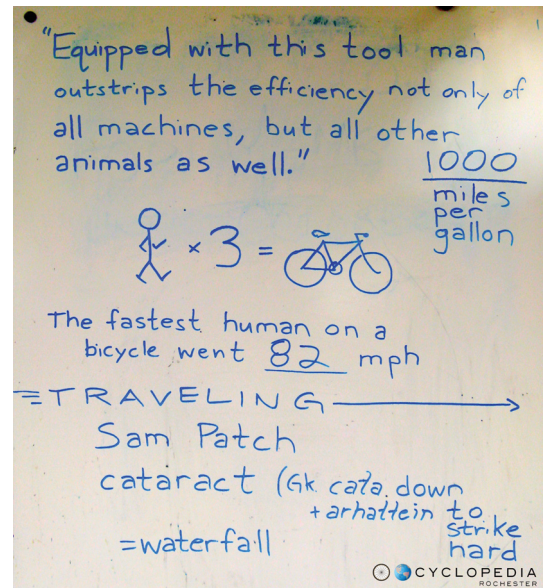 "Equipped with this tool man
outstrips the efficiency not only of
all machines, but all other
animals as well."
1000
miles
per
gallon
× 3 =
The fastest human on a
bicycle went 82 mph
TRAVELING
Sam Patch
cataract (Gk. cata. down
+ arhattein to
strike
hard
=waterfall
CYCLOPEDIA
ROCHESTER